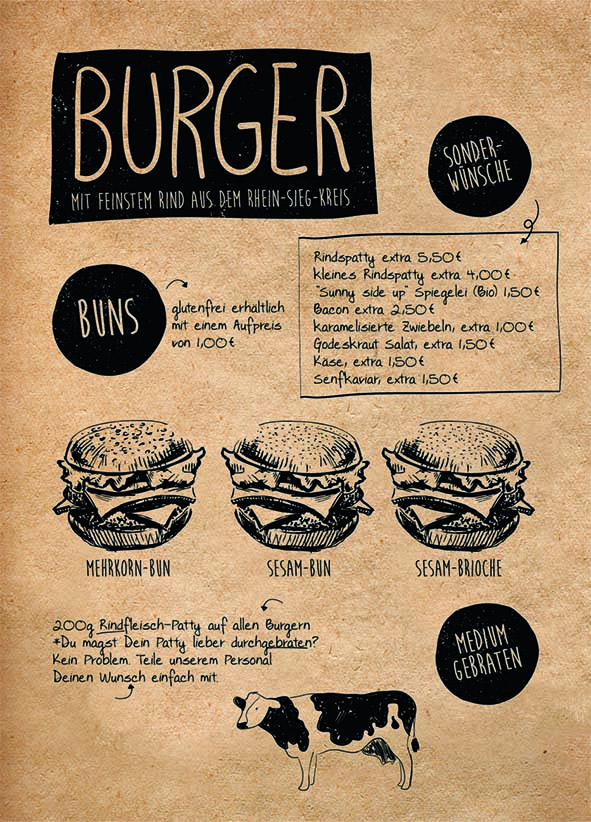 BURGER
MIT FEINSTEM RIND AUS DEM RHEIN-SIEG-KREIS
SONDER-
WÜNSCHE
Rindspatty extra 5,50€
kleines Rindspatty extra 4,00€
"Sunny side up" Spiegelei (Bio) 1,50€
Bacon extra 2,50€
karamelisierte Zwiebeln, extra 1,00€
Godeskraut Salat, extra 1,50€
Käse, extra 1,50€
Senfkaviar, extra 1,50€
BUNS
glutenfrei erhältlich
mit einem Aufpreis
von 1,00€
MEHRKORN-BUN
SESAM-BUN
SESAM-BRIOCHE
200g Rindfleisch-Patty auf allen Burgern
*Du magst Dein Patty lieber durchgebraten?
Kein Problem. Teile unserem Personal
Deinen Wunsch einfach mit.
MEDIUM
GEBRATEN